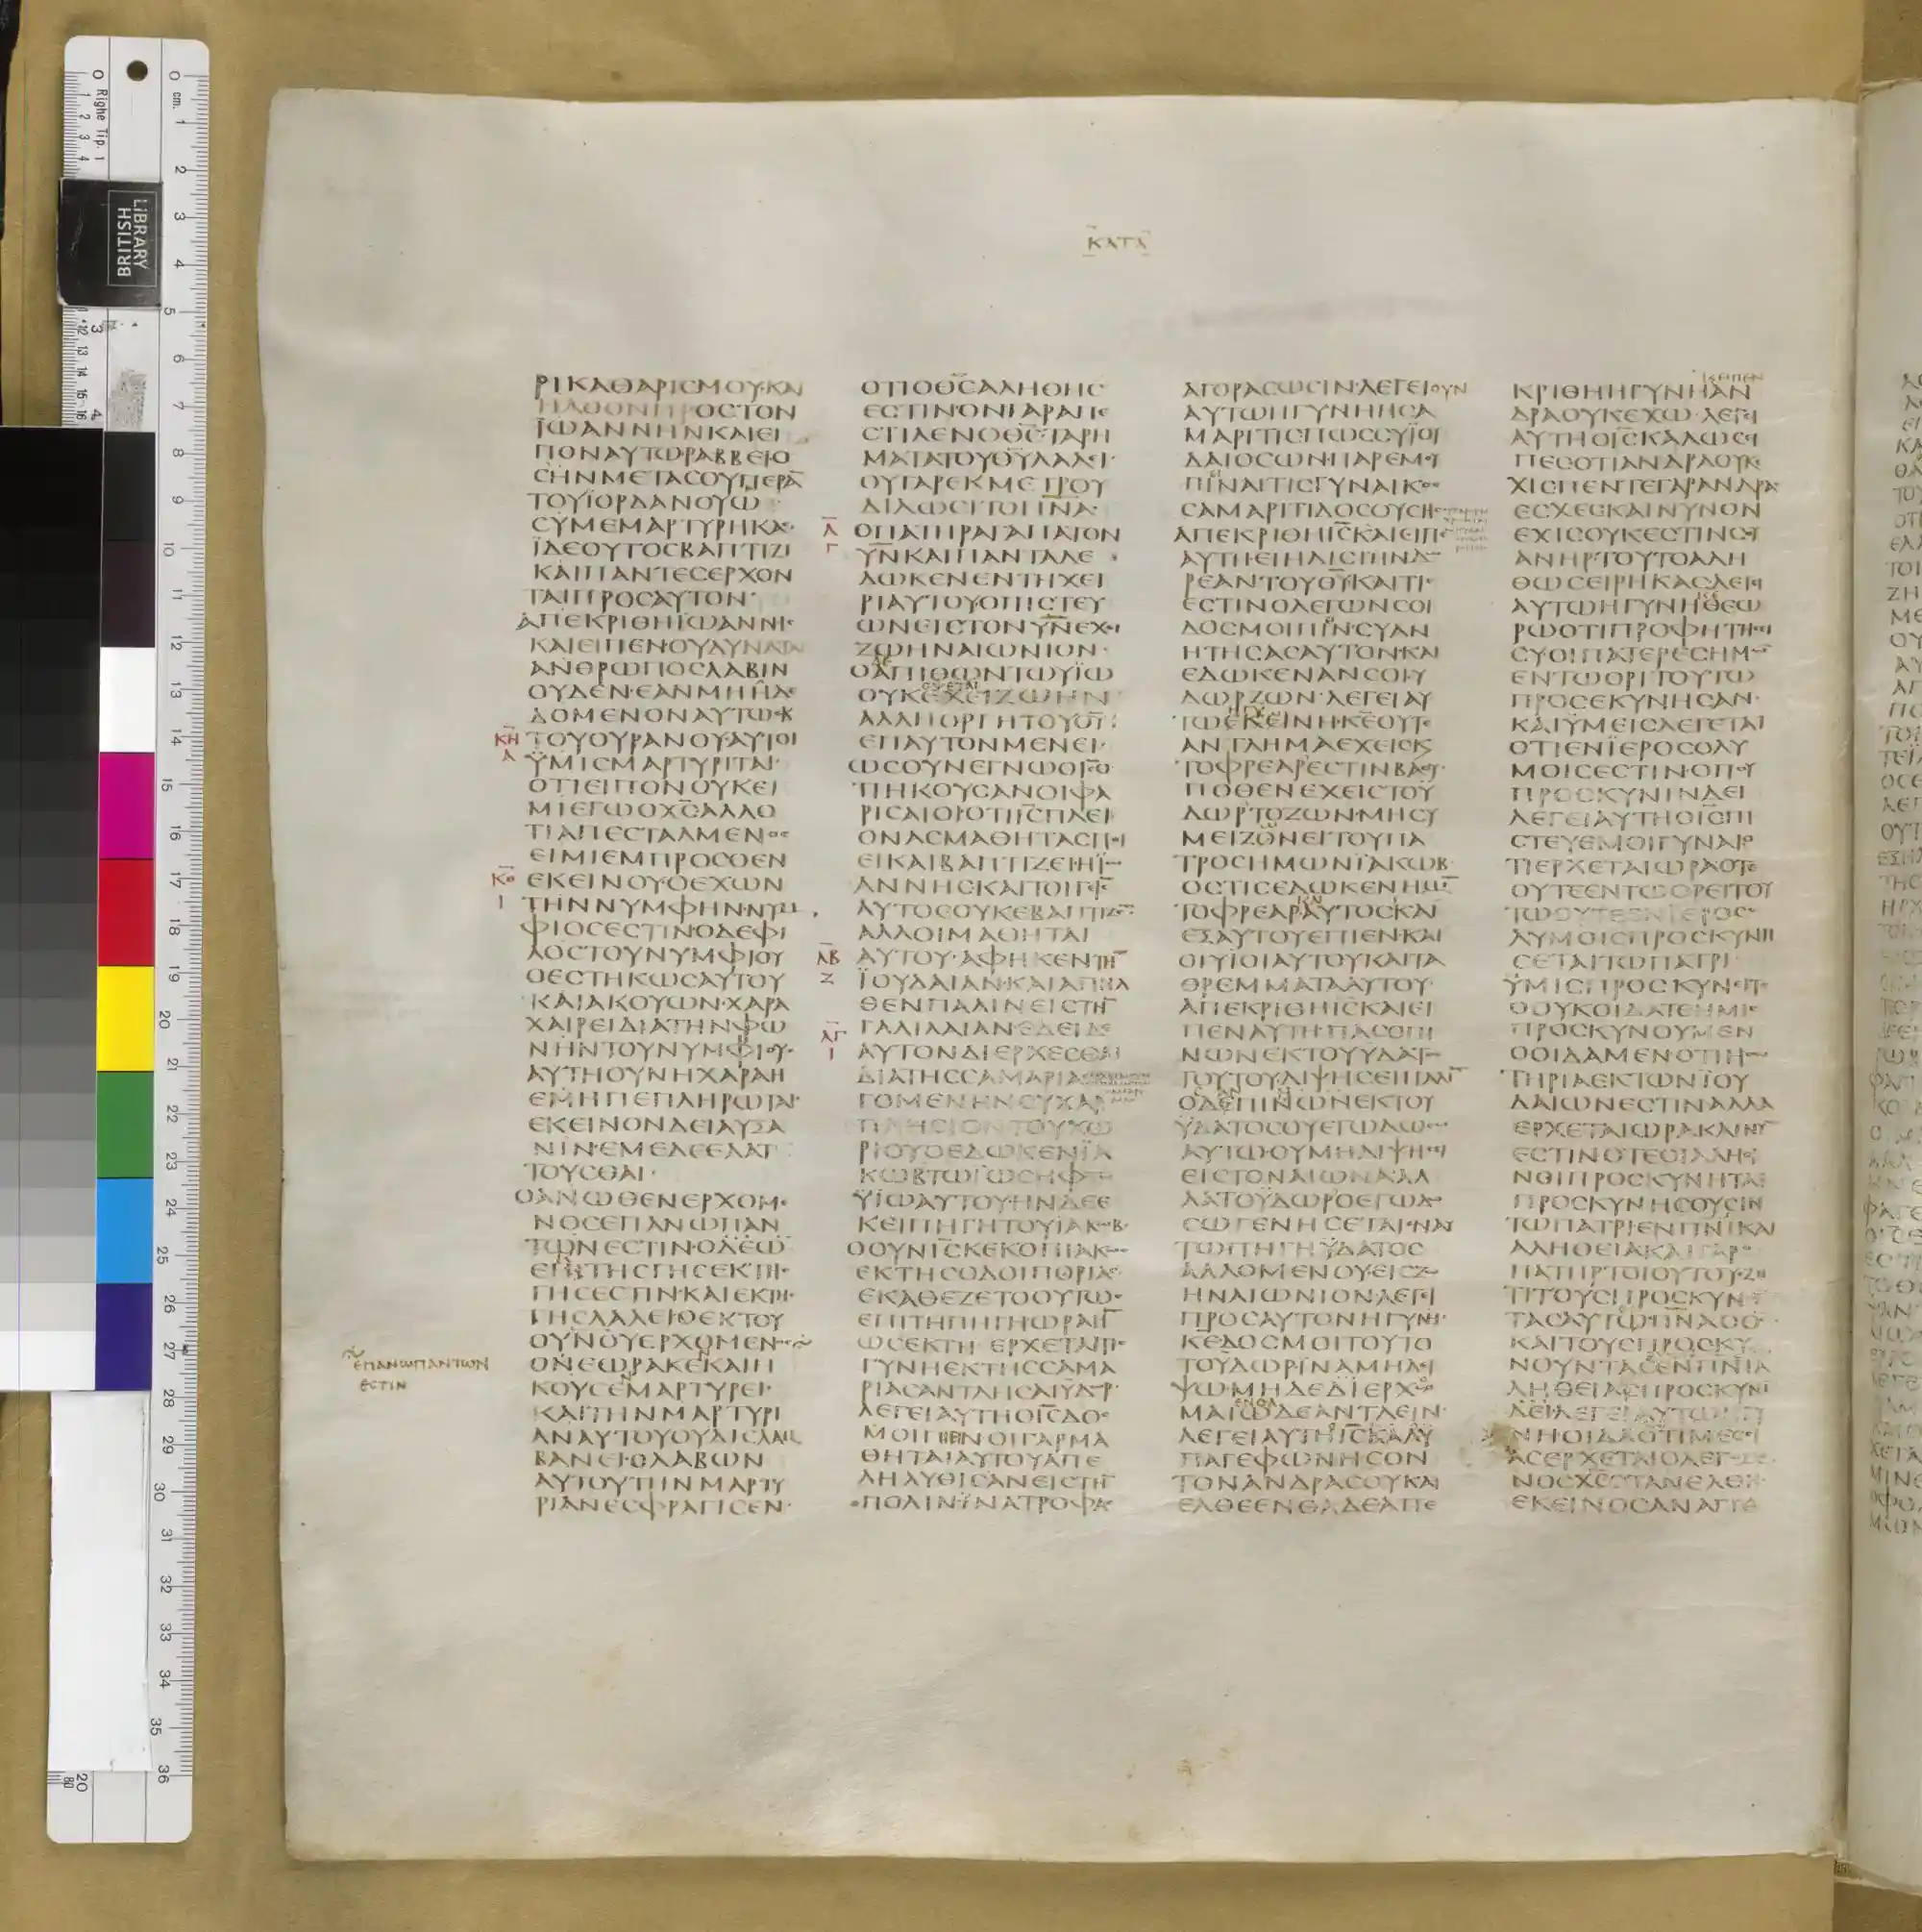 ΚΑΤΑ
ΡΙΚΑΘΑΡΙCΜΟΥ·ΚΑΙ
ΗΛΘΟΝΠΡΟCΤΟΝ
ΪΩΑΝΝΗΝΚΑΙΕΙ
ΠΟΝΑΥΤΩΡΑΒΒΕΙΟ
CΗΝΜΕΤΑCΟΥΠΕΡΑ̅
ΤΟΥΪΟΡΔΑΝΟΥΩ
CΥΜΕΜΑΡΤΥΡΗΚΑC
ΪΔΕΟΥΤΟCΒΑΠΤΙΖΙ
ΚΑΙΠΑΝΤΕCΕΡΧΟΝ
ΤΑΙΠΡΟCΑΥΤΟΝ
ΑΠΕΚΡΙΘΗΪΩΑΝΝΗC
ΚΑΙΕΙΠΕΝΟΥΔΥΝΑΤΑΙ
ΑΝΘΡΩΠΟCΛΑΒΙΝ
ΟΥΔΕΝ·ΕΑΝΜΗΗΔΕ
ΔΟΜΕΝΟΝΑΥΤΩΕΚ
ΤΟΥΟΥΡΑΝΟΥ·ΑΥΤΟΙ
ΫΜΙCΜΑΡΤΥΡΙΤΑΙ·
ΟΤΙΕΙΠΟΝΟΥΚΕΙ
ΜΙΕΓΩΟΧ̅C̅ΑΛΛΟ
ΤΙΑΠΕCΤΑΛΜΕΝΟC
ΕΙΜΙΕΜΠΡΟCΘΕΝ
ΕΚΕΙΝΟΥ·ΟΕΧΩΝ
ΤΗΝΝΥΜΦΗΝ·ΝΥΜ
ΦΙΟCΕCΤΙΝ·ΟΔΕΦΙ
ΛΟCΤΟΥΝΥΜΦΙΟΥ
ΟΕCΤΗΚΩCΑΥΤΟΥ
ΚΑΙΑΚΟΥΩΝ·ΧΑΡΑ
ΧΑΙΡΕΙΔΙΑΤΗΝΦΩ
ΝΗΝΤΟΥΝΥΜΦΙΟΥ·
ΑΥΤΗΟΥΝΗΧΑΡΑΗ
ΕΜΗΠΕΠΛΗΡΩΤΑΙ·
ΕΚΕΙΝΟΝΔΕΙΑΥΞΑ
ΝΙΝ·ΕΜΕΔΕΕΛΑΤ
ΤΟΥCΘΑΙ·
ΟΑΝΩΘΕΝΕΡΧΟΜΕ
ΝΟCΕΠΑΝΩΠΑΝ
ΤΩΝΕCΤΙΝ·ΟΔΕΩ
ΕΠΙΤΗCΓΗCΕΚΤΗC
ΓΗCΕCΤΙΝ·ΚΑΙΕΚΤΗC
ΓΗCΛΑΛΕΙ·ΟΕΚΤΟΥ
ΟΥΝΟΥΕΡΧΟΜΕΝΟC
ΕΠΑΝΩΠΑΝΤΩΝ
ΕCΤΙΝ
ΟΝΕΩΡΑΚΕΚΑΙΗ
ΚΟΥCΕΜΑΡΤΥΡΕΙ·
ΚΑΙΤΗΝΜΑΡΤΥΡΙ
ΑΝΑΥΤΟΥΟΥΔΙCΛΑΜ
ΒΑΝΕΙ·ΟΛΑΒΩΝ
ΑΥΤΟΥΤΗΝΜΑΡΤΥ
ΡΙΑΝΕCΦΡΑΓΙCΕΝ·
ΟΤΙΟΘ̅C̅ΑΛΗΘΗC
ΕCΤΙΝ·ΟΝΓΑΡΑΠΕ
CΤΙΛΕΝΟΘ̅C̅·ΤΑΡΗ
ΜΑΤΑΤΟΥΘ̅Υ̅ΛΑΛΕΙ·
ΟΥΓΑΡΕΚΜΕΤΡΟΥ
ΔΙΔΩCΙΤΟΠ̅Ν̅Α̅·
ΟΠΑΤΗΡΑΓΑΠΑΤΟΝ
Υ̅Ν̅ΚΑΙΠΑΝΤΑΔΕ
ΔΩΚΕΝΕΝΤΗΧΕΙ
ΡΙΑΥΤΟΥ·ΟΠΙCΤΕΥ
ΩΝΕΙCΤΟΝΥ̅Ν̅ΕΧΕΙ
ΖΩΗΝΑΙΩΝΙΟΝ·
ΟΑΠΙΘΩΝΤΩΥΪΩ
ΟΥΚΕΧΕΙΖΩΗΝ
ΑΛΛΗΟΡΓΗΤΟΥΘ̅Υ̅
ΕΠΑΥΤΟΝΜΕΝΕΙ·
ΩCΟΥΝΕΓΝΩΟΙ̅C̅Ο
ΤΙΗΚΟΥCΑΝΟΙΦΑ
ΡΙCΑΙΟΙ·ΟΤΙΙ̅C̅ΠΛΕΙ
ΟΝΑCΜΑΘΗΤΑCΠΟΙ
ΕΙΚΑΙΒΑΠΤΙΖΕΙΗΪΩ
ΑΝΝΗCΚΑΙΤΟΙΓΕΙ̅C̅
ΑΥΤΟCΟΥΚΕΒΑΠΤΙΖΕΝ
ΑΛΛΟΙΜΑΘΗΤΑΙ
ΑΥΤΟΥ·ΑΦΗΚΕΝΤΗ̅
ΪΟΥΔΑΙΑΝ·ΚΑΙΑΠΗΛ
ΘΕΝΠΑΛΙΝΕΙCΤΗ̅
ΓΑΛΙΛΑΙΑΝ·ΕΔΕΙΔΕ
ΑΥΤΟΝΔΙΕΡΧΕCΘΑΙ
ΔΙΑΤΗCCΑΜΑΡΙΑC
ΓΟΜΕΝΗΝCΥΧΑΡ
ΠΛΗCΙΟΝΤΟΥΧΩ
ΡΙΟΥΟΕΔΩΚΕΝΪΑ
ΚΩΒΤΩΪΩCΗΦΤΩ
ΫΪΩΑΥΤΟΥ·ΗΝΔΕΕ
ΚΕΙΠΗΓΗΤΟΥΪΑΚΩΒ·
ΟΟΥΝΙ̅C̅ΚΕΚΟΠΙΑΚΩC
ΕΚΤΗCΟΔΟΙΠΟΡΙΑC
ΕΚΑΘΕΖΕΤΟΟΥΤΩC
ΕΠΙΤΗΠΗΓΗΩΡΑΗ̅
ΩCΕΚΤΗ·ΕΡΧΕΤΑΙΤΙC
ΓΥΝΗΕΚΤΗCCΑΜΑ
ΡΙΑCΑΝΤΛΗCΑΙΫΔΩΡ·
ΛΕΓΕΙΑΥΤΗΟΙ̅C̅ΔΟC
ΜΟΙΠΙΕΙΝΟΙΓΑΡΜΑ
ΘΗΤΑΙΑΥΤΟΥΑΠΕ
ΛΗΛΥΘΙCΑΝΕΙCΤΗ̅
ΠΟΛΙΝ·ΪΝΑΤΡΟΦΑC
ΑΓΟΡΑCΩCΙΝ·ΛΕΓΕΙΟΥΝ
ΑΥΤΩΗΓΥΝΗΗCΑ
ΜΑΡΙΤΙCΠΩCCΥΪΟΥ
ΔΑΙΟCΩΝ·ΠΑΡΕΜΟΥ
ΠΙΝΑΙΤΙCΓΥΝΑΙΚΟC
CΑΜΑΡΙΤΙΔΟCΟΥCΗC
ΑΠΕΚΡΙΘΗΙ̅C̅ΚΑΙΕΙΠΕ
ΑΥΤΗ·ΕΙΗΔΙCΤΗΝΔΩ
ΡΕΑΝ·ΤΟΥΘ̅Υ̅ΚΑΙΤΙC
ΕCΤΙΝΟΛΕΓΩΝCΟΙ
ΔΟCΜΟΙΠΙΝ·CΥΑΝ
ΗΤΗCΑCΑΥΤΟΝ·ΚΑΙ
ΕΔΩΚΕΝΑΝCΟΙΥ
ΔΩΡΖΩΝ·ΛΕΓΕΙΑΥ
ΤΩΕΚΕΙΝΗ·Κ̅Ε̅ΟΥΤΕ
ΑΝΤΛΗΜΑΕΧΕΙCΚΑΙ
ΤΟΦΡΕΑΡΕCΤΙΝΒΑΘΥ·
ΠΟΘΕΝΕΧΕΙCΤΟΫ
ΔΩΡΤΟΖΩΝ·ΜΗCΥ
ΜΕΙΖΟΝΕΙΤΟΥΠΑ
ΤΡΟCΗΜΩΝΪΑΚΩΒ·
ΟCΤΙCΕΔΩΚΕΝΗΜΙ̅
ΤΟΦΡΕΑΡ·ΑΥΤΟCΚΑΙ
ΕΞΑΥΤΟΥΕΠΙΕΝ·ΚΑΙ
ΟΙΥΙΟΙΑΥΤΟΥΚΑΙΤΑ
ΘΡΕΜΜΑΤΑΑΥΤΟΥ·
ΑΠΕΚΡΙΘΗΙ̅C̅ΚΑΙΕΙ
ΠΕΝΑΥΤΗ·ΠΑCΟΠΙ
ΝΩΝΕΚΤΟΥΥΔΑΤΟC
ΤΟΥΤΟΥΔΙΨΗCΕΙΠΑΛΙ̅
ΟΔΕΠΙΝΩΝΕΚΤΟΥ
ΫΔΑΤΟCΟΥΕΓΩΔΩCΩ
ΑΥΤΩΟΥΜΗΔΙΨΗCΕΙ
ΕΙCΤΟΝΑΙΩΝΑ·ΑΛ
ΛΑΤΟΫΔΩΡΟΕΓΩΔΩ
CΩΓΕΝΗCΕΤΑΙΕΝΑΥ
ΤΩΠΗΓΗΫΔΑΤΟC
ΑΛΛΟΜΕΝΟΥ·ΕΙCΖΩ
ΗΝΑΙΩΝΙΟΝ·ΛΕΓΕΙ
ΠΡΟCΑΥΤΟΝΗΓΥΝΗ·
Κ̅Ε̅ΔΟCΜΟΙΤΟΥΤΟ
ΤΟΫΔΩΡΙΝΑΜΗΔΙ
ΨΩ·ΜΗΔΕΔΪΕΡΧΟ
ΜΑΙΩΔΕΑΝΤΛΕΙΝ·
ΛΕΓΕΙΑΥΤΗΙ̅C̅ΚΑΛΥ
ΠΑΓΕΦΩΝΗCΟΝ
ΤΟΝΑΝΔΡΑCΟΥΚΑΙ
ΕΛΘΕΕΝΘΑΔΕΑΠΕ
ΚΡΙΘΗΗΓΥΝΗΑΝ
ΔΡΑΟΥΚΕΧΩ·ΛΕΓΕΙ
ΑΥΤΗΟΙ̅C̅ΚΑΛΩCΕΙ
ΠΕCΟΤΙΑΝΔΡΑΟΥΚΕ
ΧΙCΠΕΝΤΕΓΑΡΑΝΔΡΑC
ΕCΧΕCΚΑΙΝΥΝΟΝ
ΕΧΙCΟΥΚΕCΤΙΝCΟΥ
ΑΝΗΡ·ΤΟΥΤΟΑΛΗ
ΘΩCΕΙΡΗΚΑC·ΛΕΓΕΙ
ΑΥΤΩΗΓΥΝΗΘΕΩ
ΡΩΟΤΙΠΡΟΦΗΤΗCΕΙ
CΥ·ΟΙΠΑΤΕΡΕCΗΜΩ̅
ΕΝΤΩΟΡΙΤΟΥΤΩ
ΠΡΟCΕΚΥΝΗCΑΝ·
ΚΑΙΫΜΕΙCΛΕΓΕΤΑΙ
ΟΤΙΕΝΪΕΡΟCΟΛΥ
ΜΟΙCΕCΤΙΝ·ΟΠΟΥ
ΠΡΟCΚΥΝΙΝΔΕΙ
ΛΕΓΕΙΑΥΤΗΟΙ̅C̅ΠΙ
CΤΕΥΕΜΟΙΓΥΝΑΙΟ
ΤΙΕΡΧΕΤΑΙΩΡΑΟΤΕ
ΟΥΤΕΕΝΤΩΟΡΕΙΤΟΥ
ΤΩΟΥΤΕΕΝΪΕΡΟCΟ
ΛΥΜΟΙCΠΡΟCΚΥΝΗ
CΕΤΑΙΤΩΠΑΤΡΙ·
ΫΜΙCΠΡΟCΚΥΝΕΙΤΕ
ΟΟΥΚΟΙΔΑΤΕ·ΗΜΙC
ΠΡΟCΚΥΝΟΥΜΕΝ
ΟΟΙΔΑΜΕΝ·ΟΤΙΗCΩ
ΤΗΡΙΑΕΚΤΩΝΪΟΥ
ΔΑΙΩΝΕCΤΙΝ·ΑΛΛΑ
ΕΡΧΕΤΑΙΩΡΑΚΑΙΝΥ̅
ΕCΤΙΝΟΤΕΟΙΑΛΗΘΙ
ΝΟΙΠΡΟCΚΥΝΗΤΑΙ
ΠΡΟCΚΥΝΗCΟΥCΙΝ
ΤΩΠΑΤΡΙΕΝΠ̅Ν̅Ι̅ΚΑΙ
ΑΛΗΘΕΙΑΚΑΙΓΑΡΟ
ΠΑΤΗΡΤΟΙΟΥΤΟΥCΖΗ
ΤΙΤΟΥCΠΡΟCΚΥΝΟΥ
ΤΑCΑΥΤΩ·Π̅Ν̅Α̅ΟΘ̅C̅·
ΚΑΙΤΟΥCΠΡΟCΚΥ
ΝΟΥΝΤΑCΕΝΠ̅Ν̅Ι̅Α
ΛΗΘΕΙΑCΠΡΟCΚΥΝΙ
ΔΕΙ·ΛΕΓΕΙΑΥΤΩΗΓΥ
ΝΗ·ΟΙΔΑΟΤΙΜΕCΙ
ΑCΕΡΧΕΤΑΙΟΛΕΓΟΜΕ
ΝΟCΧ̅C̅ΟΤΑΝΕΛΘΗ
ΕΚΕΙΝΟCΑΝΑΓΓΕ